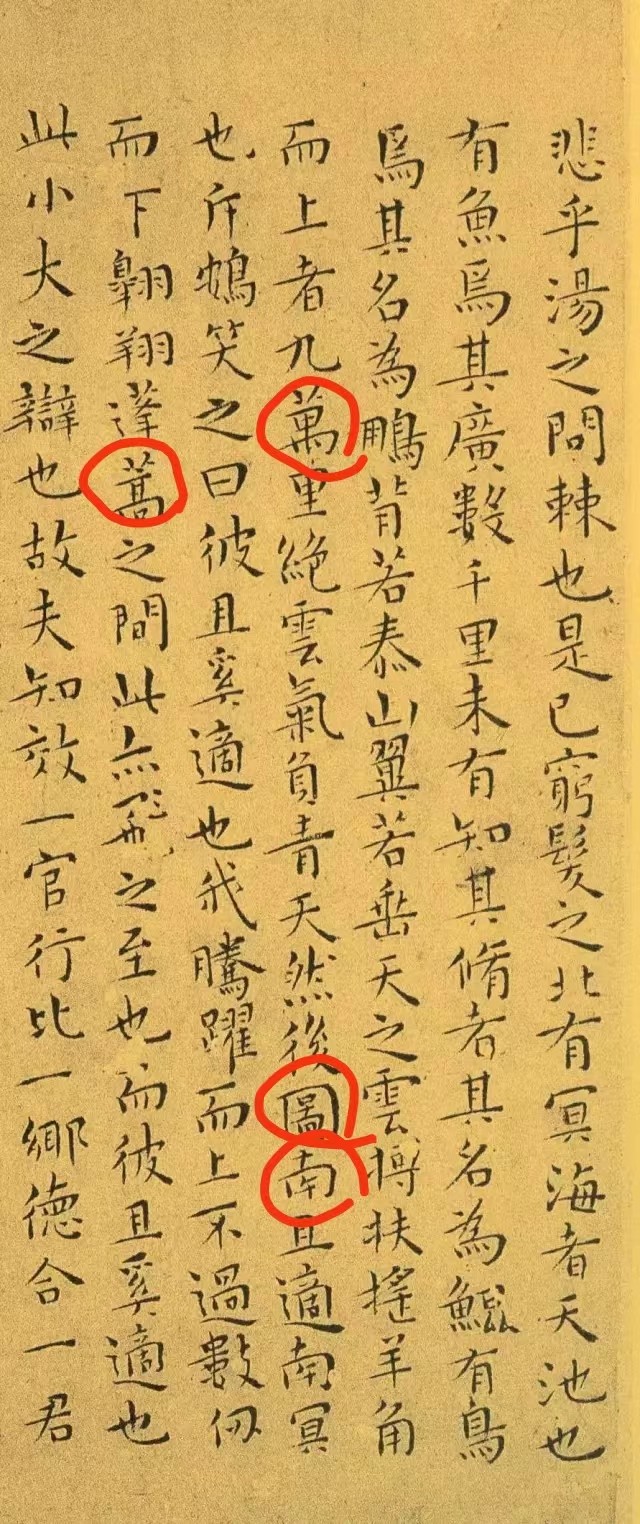 悲乎湯之問棘也是已窮髮之北有冥海者天池也
有魚焉其廣數千里未有知其脩者其名為鯤有鳥
焉其名為鵬背若泰山翼若垂天之雲摶扶搖羊角
而上者九萬里絕雲氣負青天然後圖南且適南冥
也斥鴳笑之曰彼且奚適也我騰躍而上不過數仞
而下翱翔蓬蒿之間此亦飛之至也而彼且奚適也
此小大之辯也故夫知效一官行比一鄉德合一君